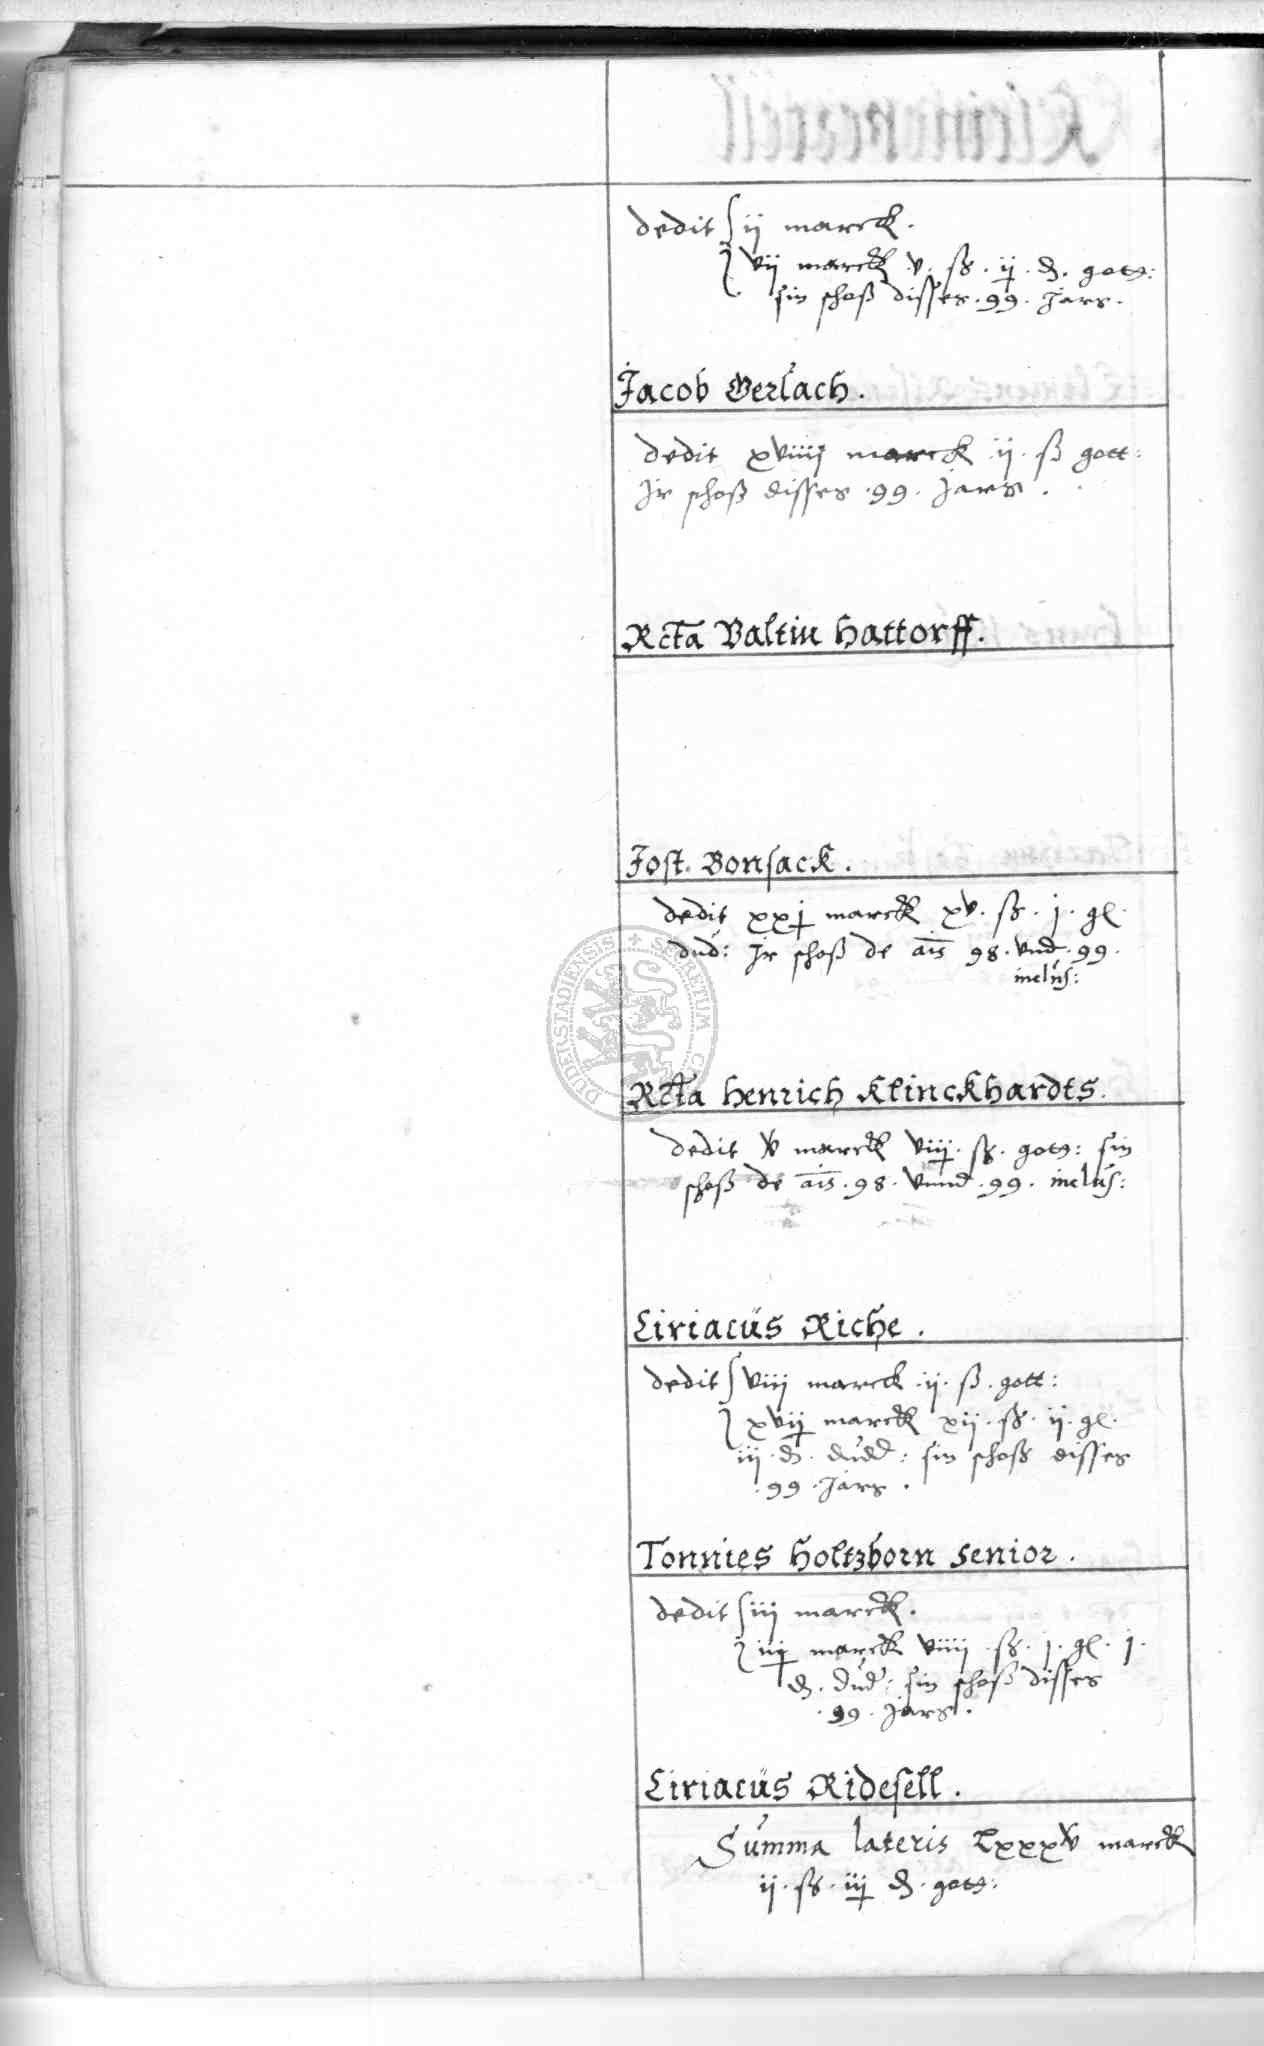 dedit ij marck.
vij marck v. ß. ij. d. gott:
sin schoß disses. 99. Jars.
Jacob Gerlach.
dedit xviiij marck ij. ß gott:
Jr schoß disses. 99. Jars.
Rcta Valtin Hattorff.
Jost Bonsack.
dedit xxj marck xv. ß. j. gl.
dud: Jr schoß de ais 98. vnd. 99.
inclus:
DUDERSTADIENSIS SECRETUM
Rcta Henrich Klinckhardts.
dedit v marck viij. ß. gott: sin
schoß de ais. 98. vnnd. 99. inclus:
Ciriacus Riche.
dedit viij marck ij. ß. gott:
xvij marck xij. ß. ij. gl.
iij. d. dud: sin schoß disses
.99. Jars.
Tonnies Holtzborn senior.
dedit iij marck.
iij marck viiij. ß. j. gl. j.
d. dud: sin schoß disses
.99. Jars.
Ciriacus Ridesell.
Summa lateris Lxxxv marck
ij. ß. iij d. gott: